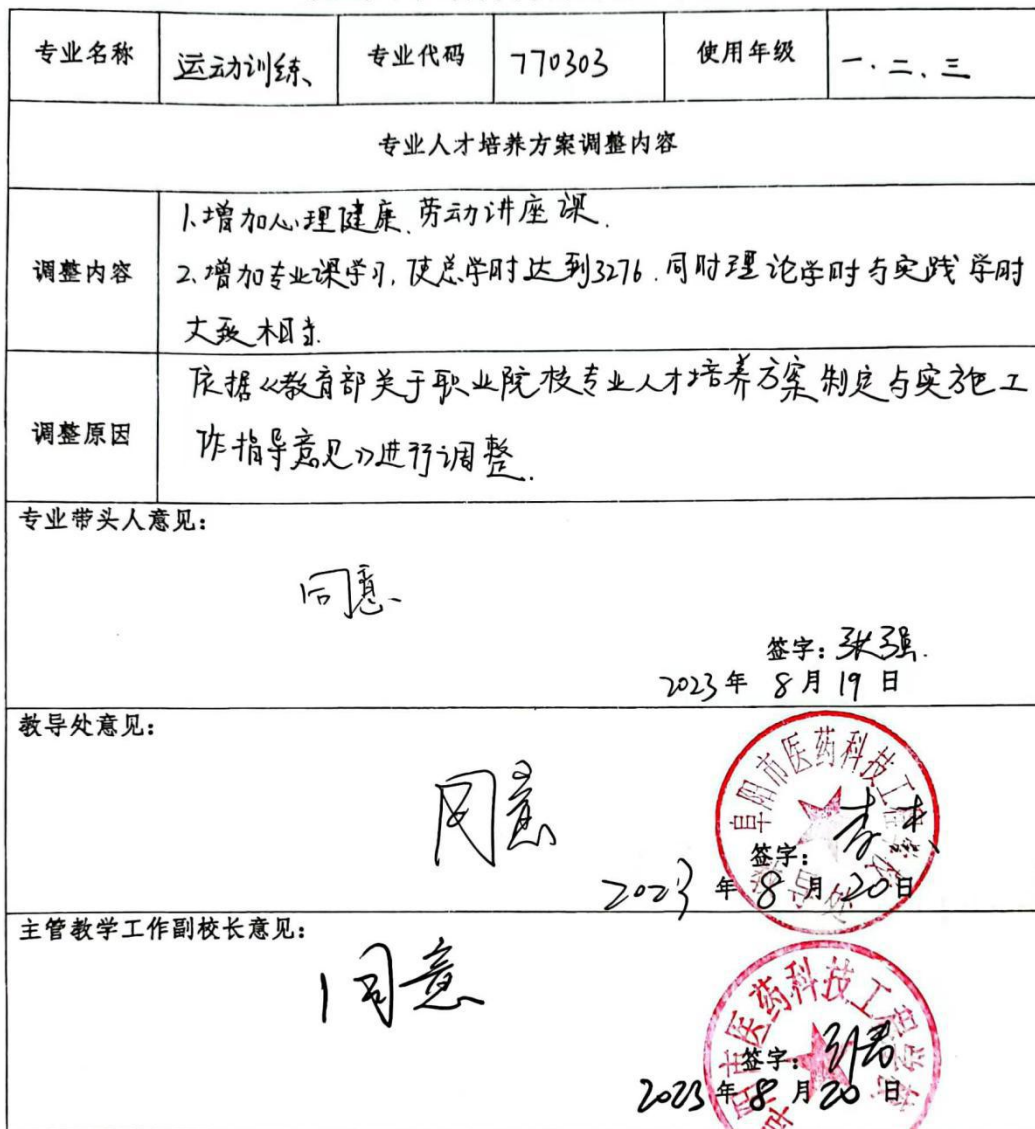 专业名称 运动训练 专业代码 770303 使用年级 一、二、三
专业人才培养方案调整内容
调整内容
1.增加心理健康、劳动讲座课.
2.增加专业课学习,使总学时达到3276.同时理论学时与实践学时
大致相当.
调整原因
依据《教育部关于职业院校专业人才培养方案制定与实施工
作指导意见》进行调整.
专业带头人意见:
同意
签字:张强.
2023年 8月19日
教导处意见:
同意
阜阳市医药科技工程学校
教导处
签字:
2023年8月20日
主管教学工作副校长意见:
同意
阜阳市医药科技工程学校
签字:
2023年8月20日